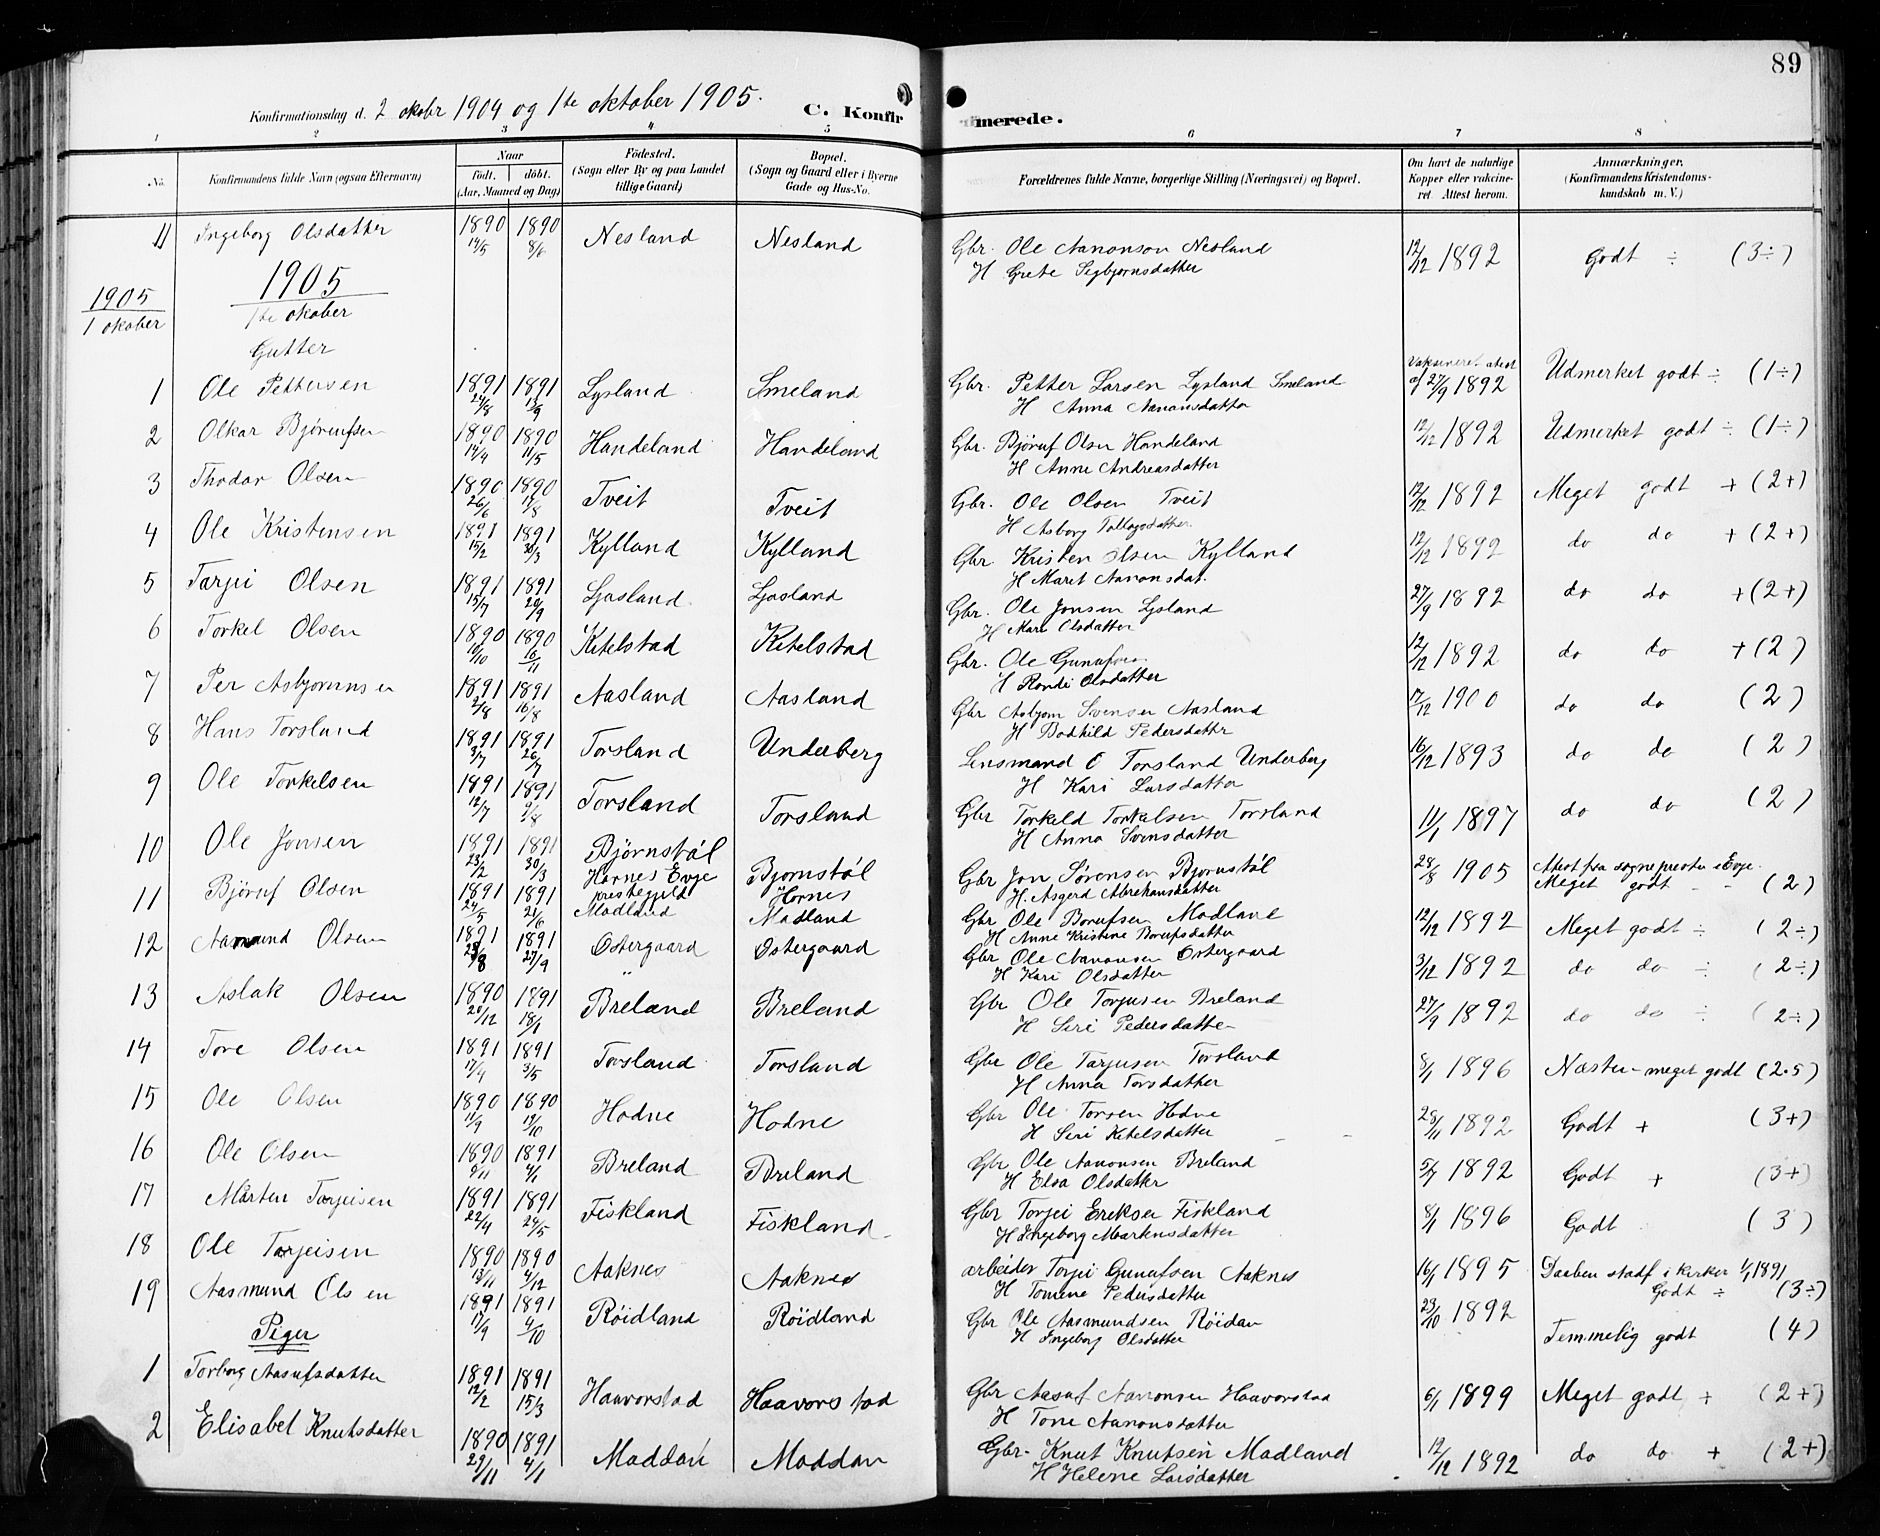 89
Konfirmationsdag d. 2 okobr 1904 og 1te oktober 1905.
C. Konfir merede.
1 2 3 4 5 6 7 8
No. Konfirmandens fulde Navn (ogsaa Efternavn) Naar födt. döbt. (Aar, Maaned og Dag) Födested. (Sogn eller By og paa Landet tillige Gaard) Bopæl. (Sogn og Gaard eller i Byerne Gade og Hus-No. Forældrenes fulde Navne, borgerlige Stilling (Næringsvei) og Bopæl. Om havt de naturlige Kopper eller vakcineret Attest herom. Anmærkninger. (Konfirmandens Kristendomskundskab m. V.)
11 Ingeborg Olsdatter 1890 14/5 1890 8/6 Nesland Nesland Gbr. Ole Aanonson Nesland 12/12 1892 Godt ÷ (3÷)
H Grete Sigbjørnsdatter
1905
1905 1te okober
1 okober
Gutter
1 Ole Pettersen 1891 24/8 1891 13/9 Lysland Smeland Gbr. Petter Larsen Lysland Smeland Vaksineret atest af 27/9 1892 Udmerket godt ÷ (1÷)
H Anna Aanonsdatter
2 Olkar Bjørufsen 1890 14/4 1890 11/5 Handeland Handeland Gbr. Bjøruf Olsen Handeland 12/12 1892 Udmerket godt ÷ (1÷)
H Anne Andreasdatter
3 Thodar Olsen 1890 26/6 1890 17/8 Tveit Tveit Gbr. Ole Olsen Tveit 12/12 1892 Meget godt + (2+)
H Asborg Tallagsdatter
4 Ole Kristensen 1891 15/2 1891 30/3 Kylland Kylland Gbr. Kristen Olsen Kylland 12/12 1892 do do + (2+)
H Maret Aanonsdat.
5 Tarjei Olsen 1891 15/7 1891 20/9 Ljosland Ljosland Gbr. Ole Jonsen Lysland 27/9 1892 do do + (2+)
H Mari Olsdatter
6 Torkel Olsen 1890 10/10 1890 16/11 Ketelstad Ketelstad Gbr. Ole Gunufsen 12/12 1892 do do + (2)
H Rondi Olsdatter
7 Per Asbjørnsen 1891 2/8 1891 16/8 Aasland Aasland Gbr Asbjørn Svensen Aasland 17/12 1900 do do (2)
H Bodhild Pedersdattr
8 Hans Torsland 1891 3/7 1891 26/7 Torsland Underberg Lensmand O Torsland Underberg 16/12 1893 do do (2)
H Kari Larsdatter
9 Ole Torkelsen 1891 12/7 1891 9/8 Torsland Torsland Gbr Torkeld Torkelsen Torsland 11/1 1897 do do (2)
H Anna Svensdatter
10 Ole Jonsen 1891 23/2 1891 30/3 Björnstöl Hornes Evje prestegjeld Bjornstöl Hornes Gbr Jon Sørensen Bjornstöl 28/8 1905 Atest fra sognepresten i Evje. Meget godt - - (2)
H. Asgerd Abrehamsdatter
11 Björuf Olsen 1891 24/5 1891 21/6 Modland Modland Gbr Ole Borufsen Modland 12/12 1892 Meget godt ÷ (2÷)
H Anne Kristine Borufsdatter
12 Aasmund Olsen 1891 23/8 1891 27/9 Ostergaard Østergaard Gbr Ole Aanonsen Østergaard 3/12 1892 do do ÷ (2÷)
H Kari Olsdatter
13 Aslak Olsen 1890 20/12 1891 18/1 Breland Breland Gbr Ole Torjusen Breland 27/9 1892 do do ÷ (2÷)
H Siri Pedersdatter
14 Tore Olsen 1891 17/4 1891 3/5 Torsland Torsland Gbr Ole Tarjusen Torsland 8/1 1896 Næsten meget godt (2.5)
H Anna Torsdatter
15 Ole Olsen 1890 11/9 1890 19/10 Hodne Hodne Gbr Ole Torsen Hodne 28/11 1892 Godt + (3+)
H Siri Ketelsdatter
16 Ole Olsen 1890 9/11 1891 4/1 Breland Breland Gbr Ole Aanonsen Breland 5/7 1892 Godt + (3+)
H Elsa Olsdatter
17 Mårten Tarjeisen 1891 22/4 1891 24/5 Fiskland Fiskland Gbr Torjei Eriksen Fiskland 8/1 1896 Godt (3)
H Ingeborg Martensdatter
18 Ole Tarjeisen 1890 13/11 1890 4/12 Aaknes Aaknes arbeider Torjei Gunufsen Aaknes 16/1 1895 Daaben stadf i kirken 1/1 1891 Godt ÷ (3÷)
H Tomine Pedersdatter
19 Aasmund Olsen 1891 17/9 1891 4/10 Røidland Røidland Gbr Ole Aasmundsen Röidan 23/10 1892 Temmelig godt (4)
H Ingeborg Olsdatter
Piger
1 Torborg Aasufsdatter 1891 12/2 1891 15/3 Haavorstad Haavorstad Gbr Aasuf Aanonsen Haavorstad 6/1 1899 Meget godt + (2+)
H Tone Aanonsdatter
2 Elisabet Knutsdatter 1890 29/11 1891 4/1 Moddan Moddan Gbr. Knut Knutsen Modland 12/12 1892 do do + (2+)
H Helene Larsdatter